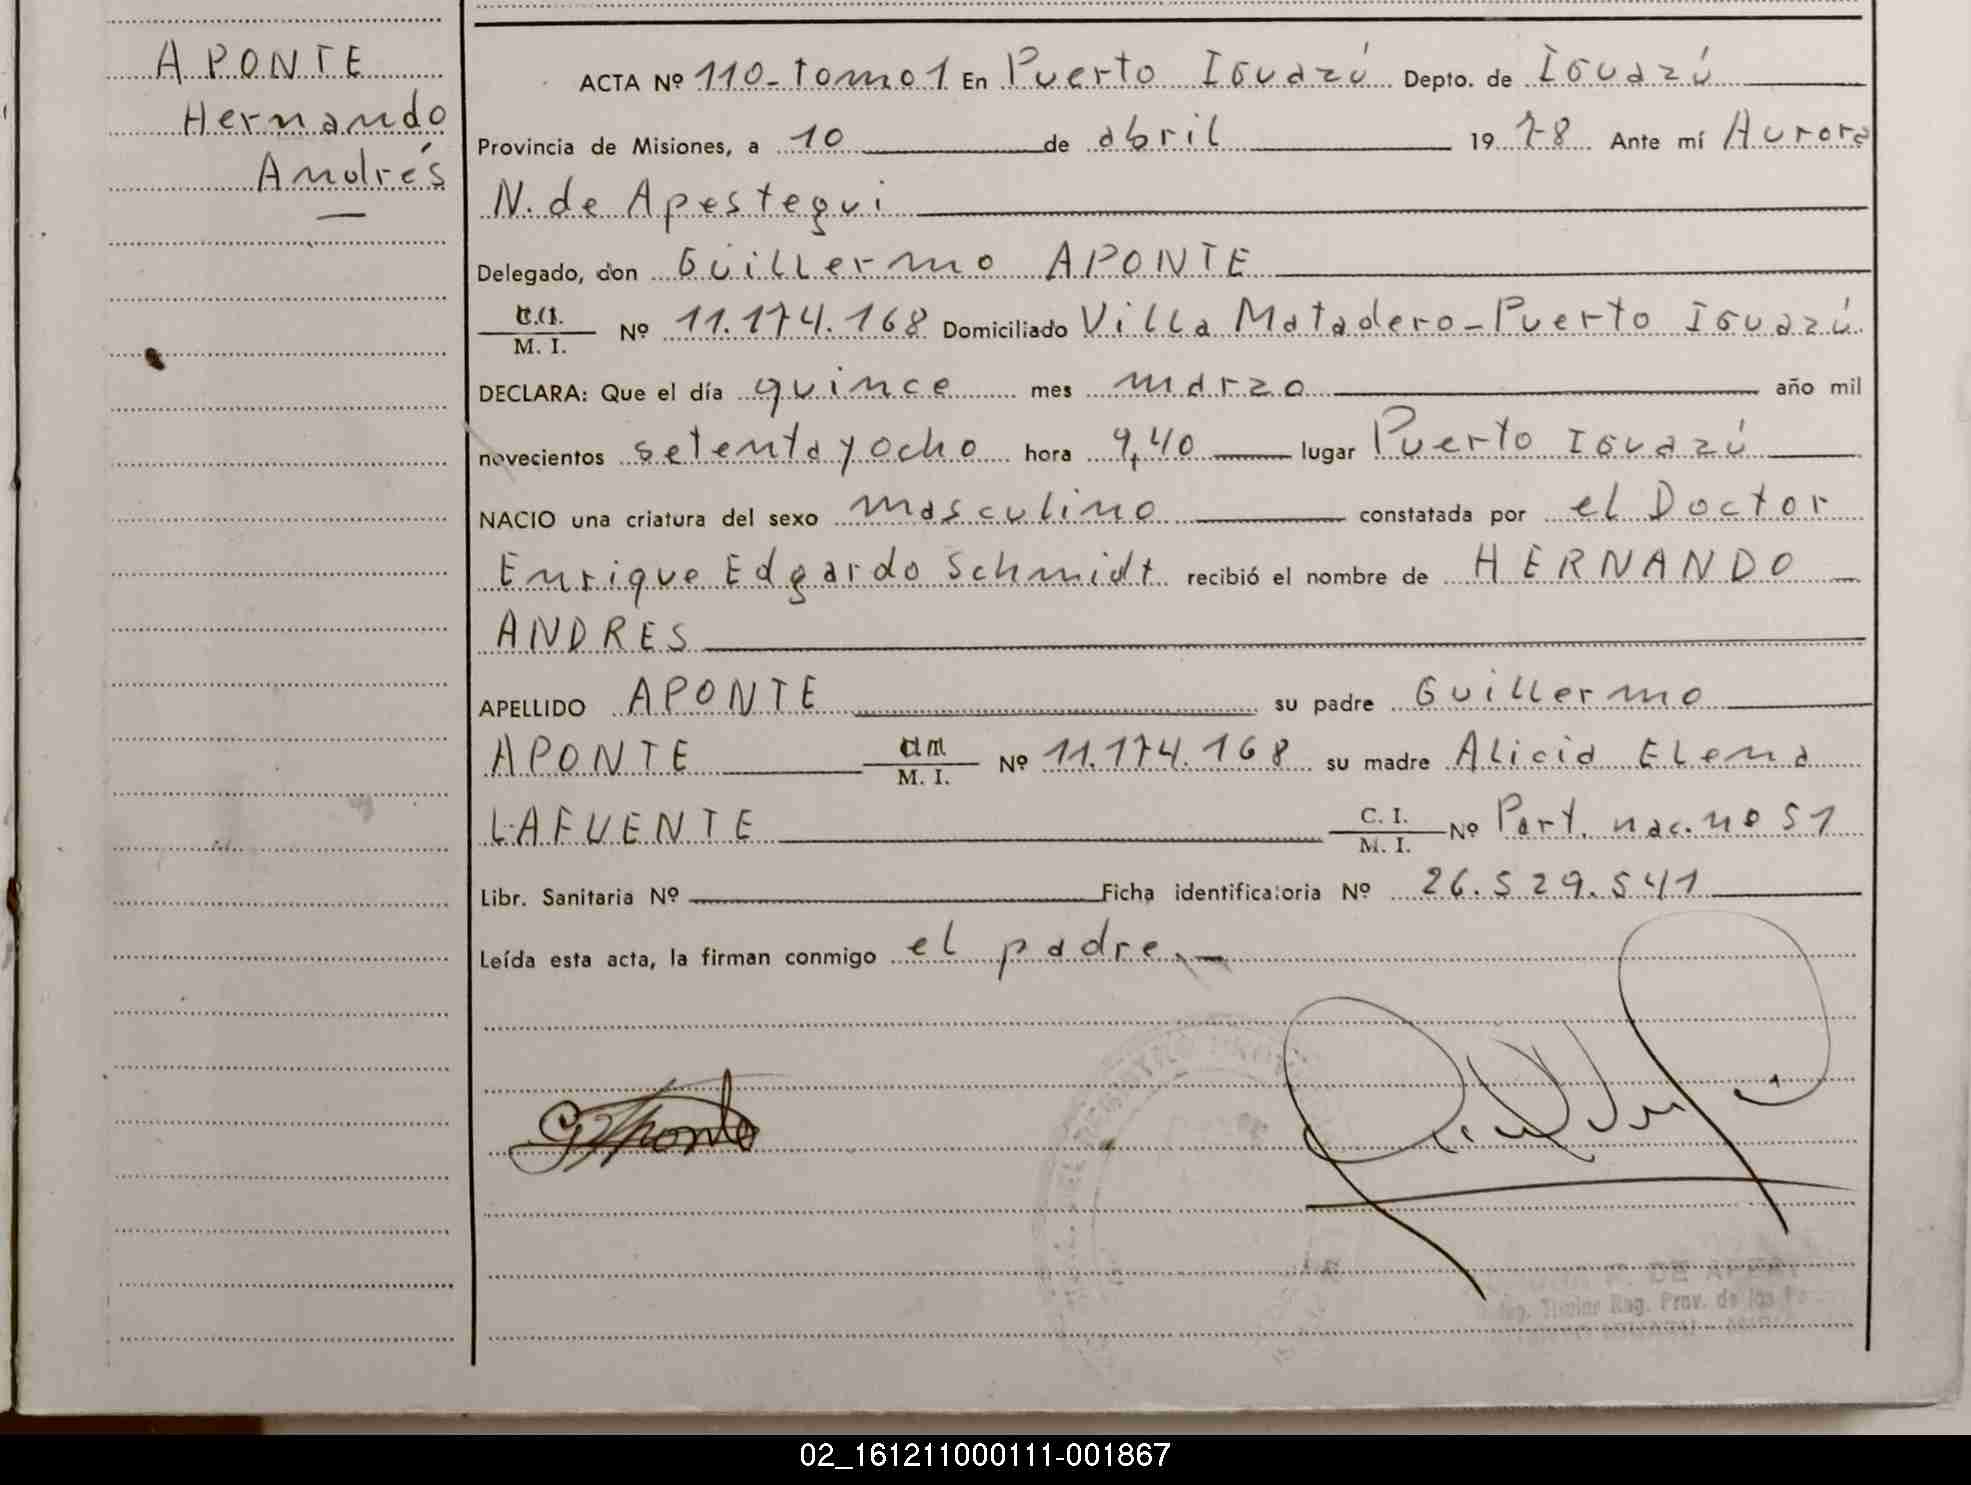 APONTE
Hernando
Andrés
ACTA Nº 110-tomo 1 En Puerto Iguazú Depto. de Iguazú
Provincia de Misiones, a 10 de abril 1978 Ante mí Aurora
N. de Apestegui
Delegado, don Guillermo APONTE
M. I. Nº 11.174.168 Domiciliado Villa Matadero-Puerto Iguazú
DECLARA: Que el día quince mes marzo año mil
novecientos setenta y ocho hora 9,40 lugar Puerto Iguazú
NACIO una criatura del sexo masculino constatada por el Doctor
Enrique Edgardo Schmidt recibió el nombre de HERNANDO
ANDRES
APELLIDO APONTE su padre Guillermo
APONTE M. I. Nº 11.174.168 su madre Alicia Elena
LAFUENTE C. I. M. I. Nº Part. nac. nº 51
Libr. Sanitaria Nº Ficha identificatoria Nº 26.529.541
Leída esta acta, la firman conmigo el padre.-
G Aponte
02_161211000111-001867